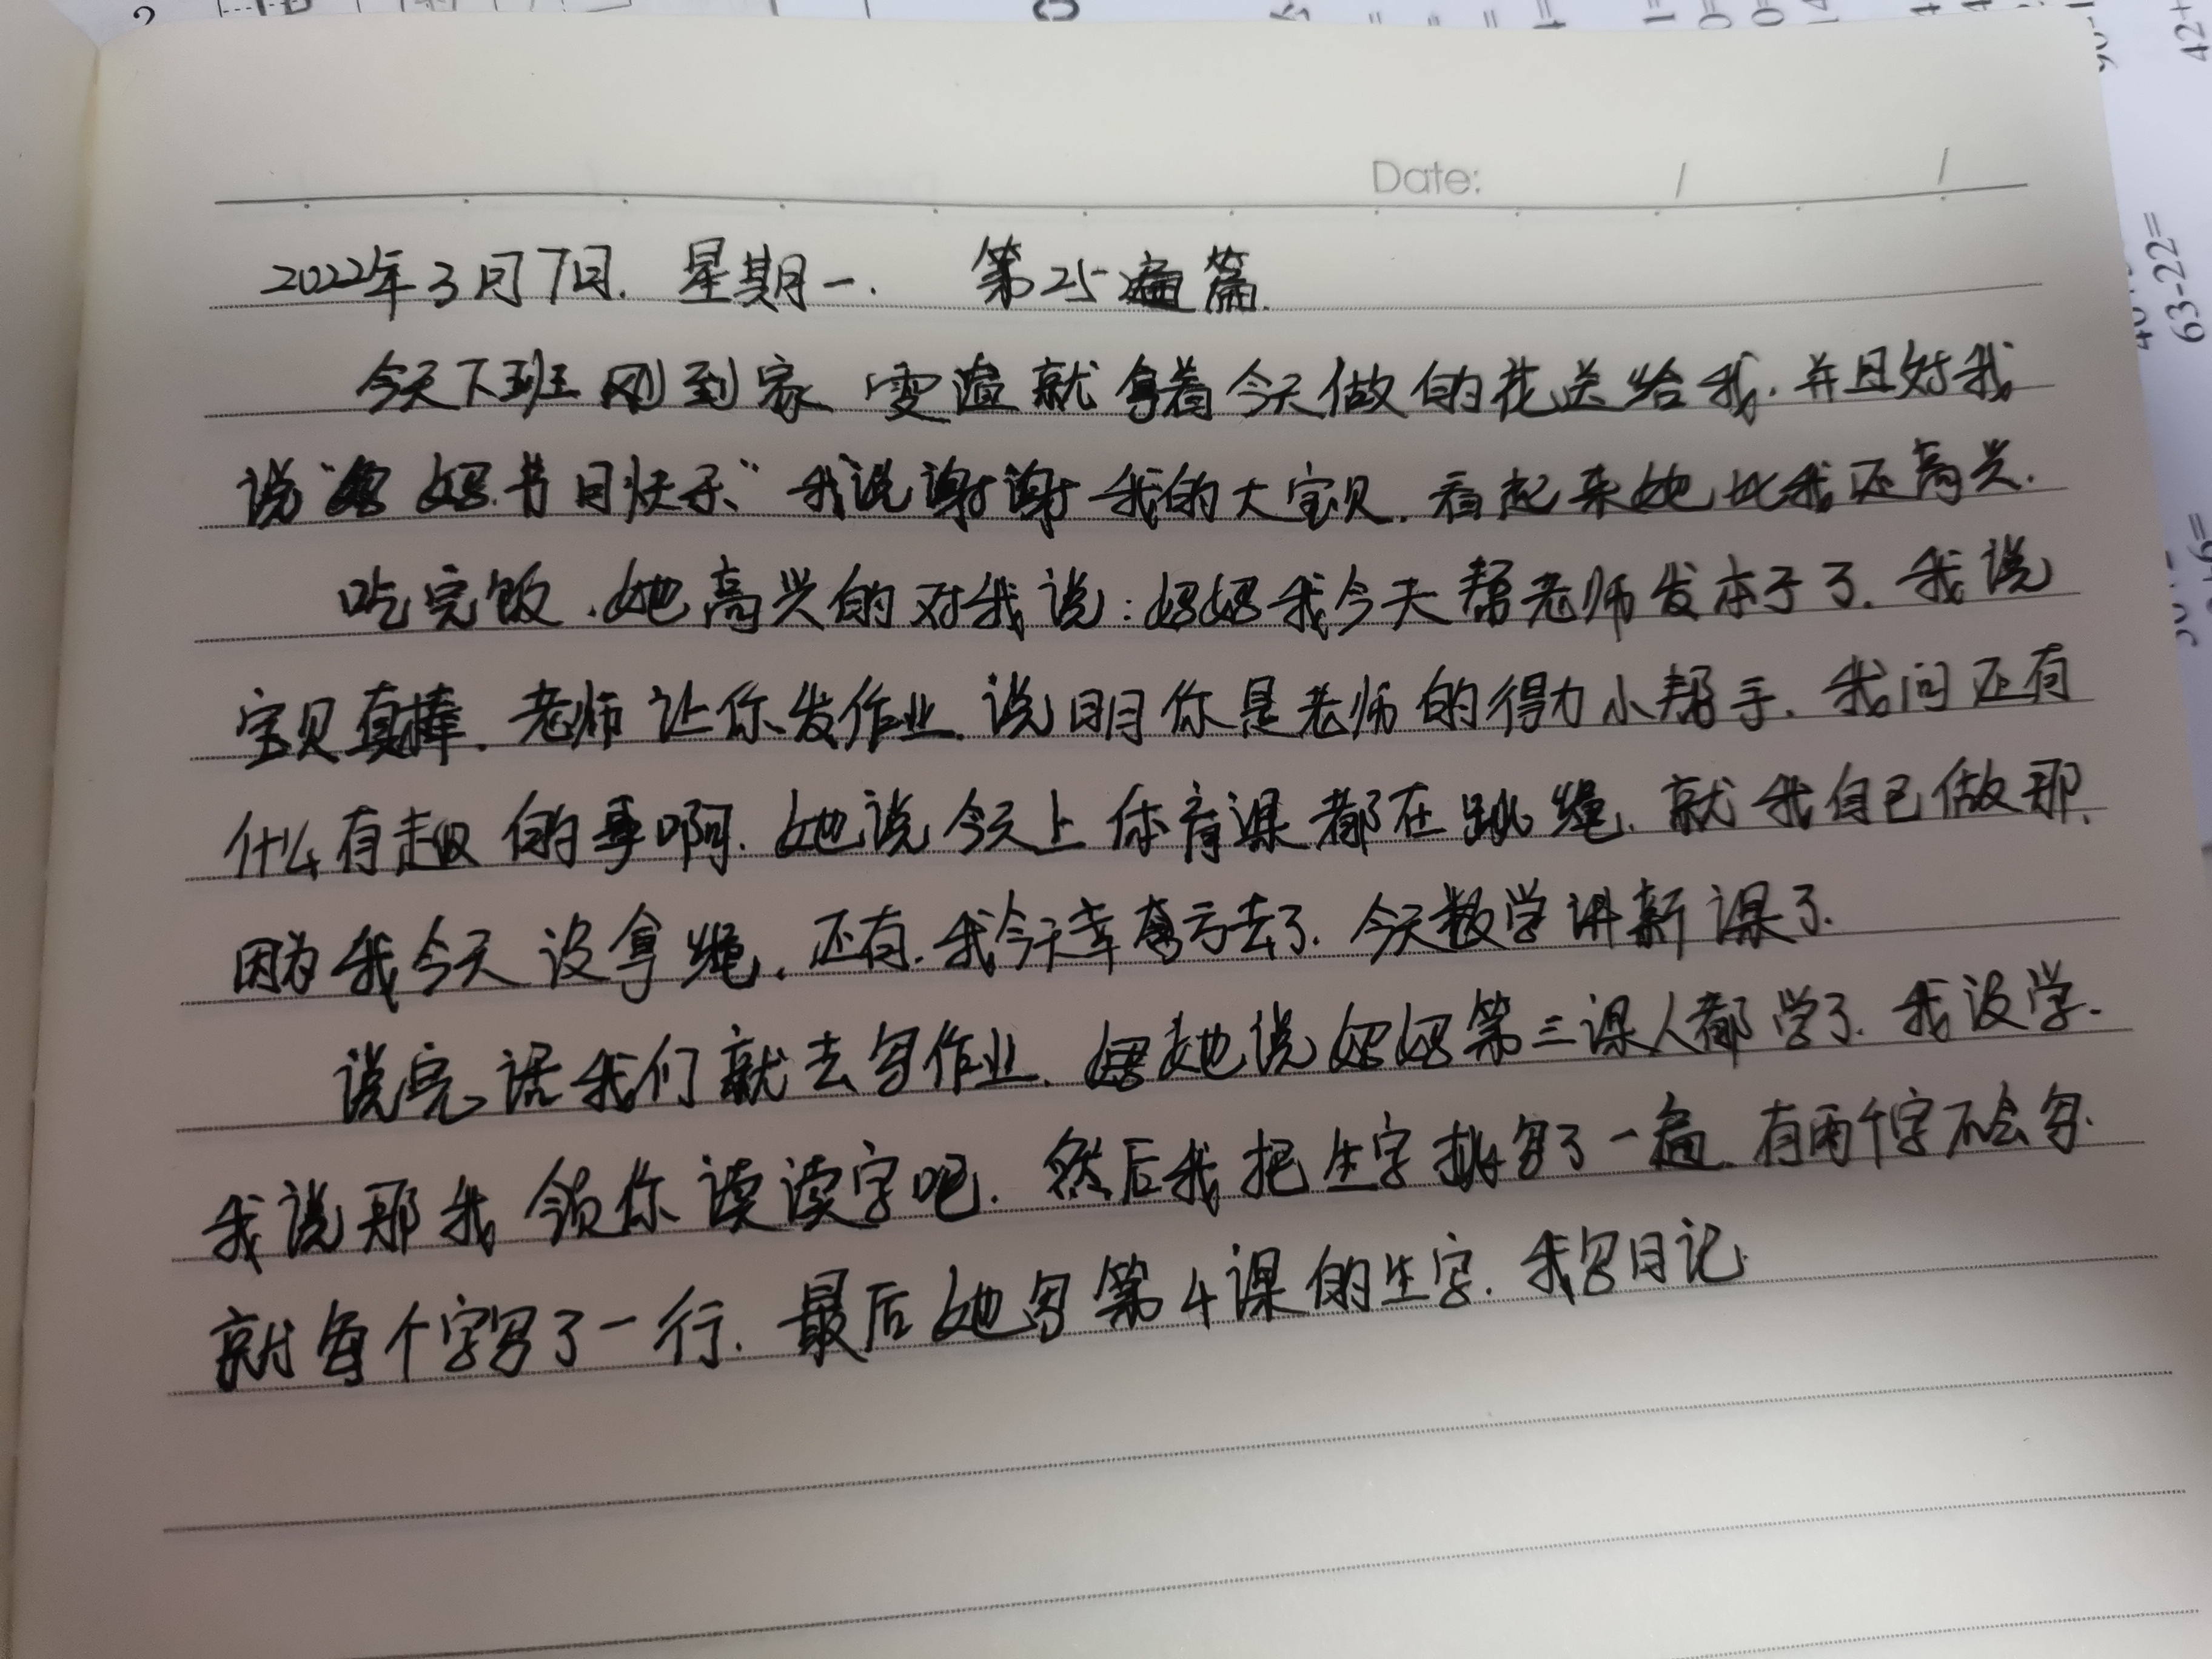 Date: / /
2022年3月7日. 星期一. 第25篇.
今天下班刚到家 雯渲就拿着今天做的花送给我.并且对我
说"妈妈.节日快乐"我说谢谢我的大宝贝.看起来她比我还高兴.
吃完饭.她高兴的对我说:妈妈我今天帮老师发本子了.我说
宝贝真棒.老师让你发作业.说明你是老师的得力小帮手.我问还有
什么有趣的事啊.她说今天上体育课都在跳绳.就我自己做那.
因为我今天没拿绳.还有.我今天幸亏去了.今天数学讲新课了.
说完话我们就去写作业.她说妈妈第三课人都学了.我没学.
我说那我领你读读字吧.然后我把生字挑写了一遍.有两个字不会写.
就每个字写了一行.最后她写第4课的生字.我写日记.
63-22=
42+